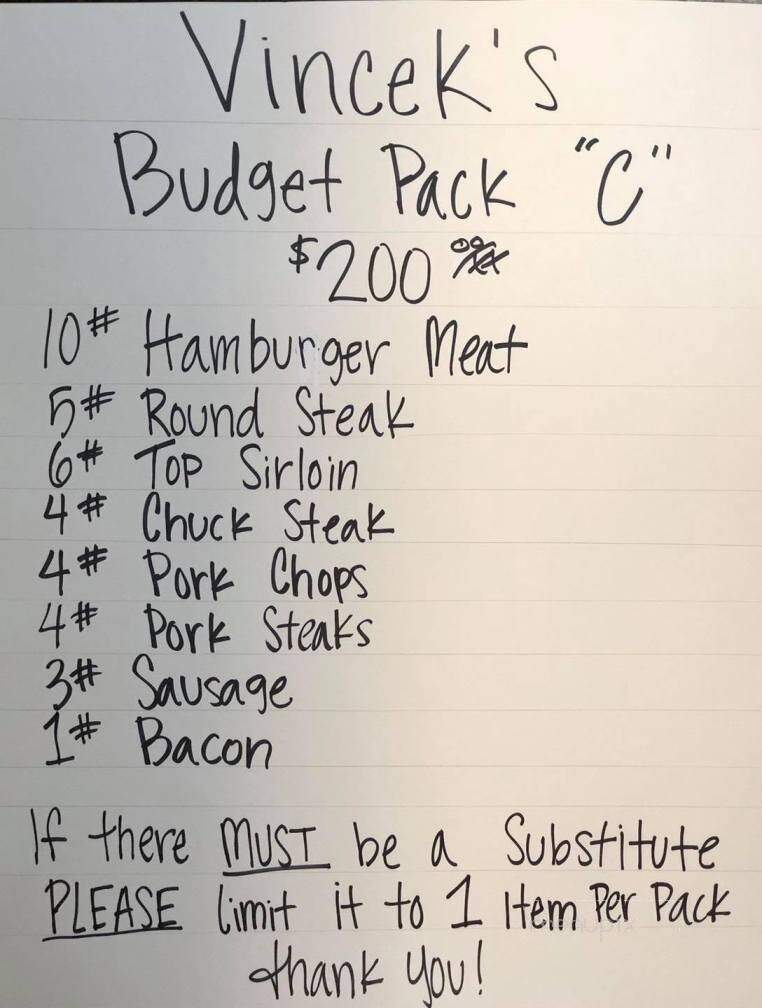 Vincek's
Budget Pack "C"
$200 00/xx
10# Hamburger Meat
5# Round Steak
6# Top Sirloin
4# Chuck Steak
4# Pork Chops
4# Pork Steaks
3# Sausage
1# Bacon
If there MUST be a Substitute
PLEASE limit it to 1 Item Per Pack
thank you!